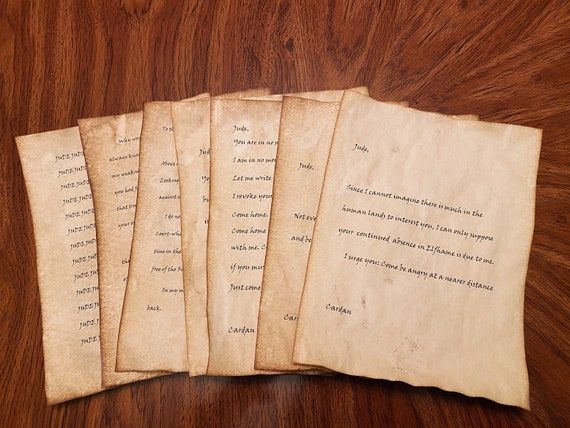 JUDE JUD
JUDE JUD
JUDE JUD
JUDE JUD
JUDE JUD
JUDE JUD
JUDE JUD
JUDE JUD
JUDE JUD
JUDE JUD
JUDE JUD
JUDE JUD
JUDE JUD
Why wo
Always know
my weakness
you had f
that
your o
To th
Above
Lookin
against
I do no
Court—wh
time in th
free of the Fo
In my m
back.
Ju
Yo
Jude,
You are in no
I am in no moo
Let me write
I revoke your
Come home.
Come home
with me. C
if you mus
Just come
Cardan
Jude,
Not eve
and be
Car
Jude,
Since I cannot imagine there is much in the
human lands to interest you, I can only suppose
your continued absence in Elfhame is due to me.
I urge you: Come be angry at a nearer distance
Cardan